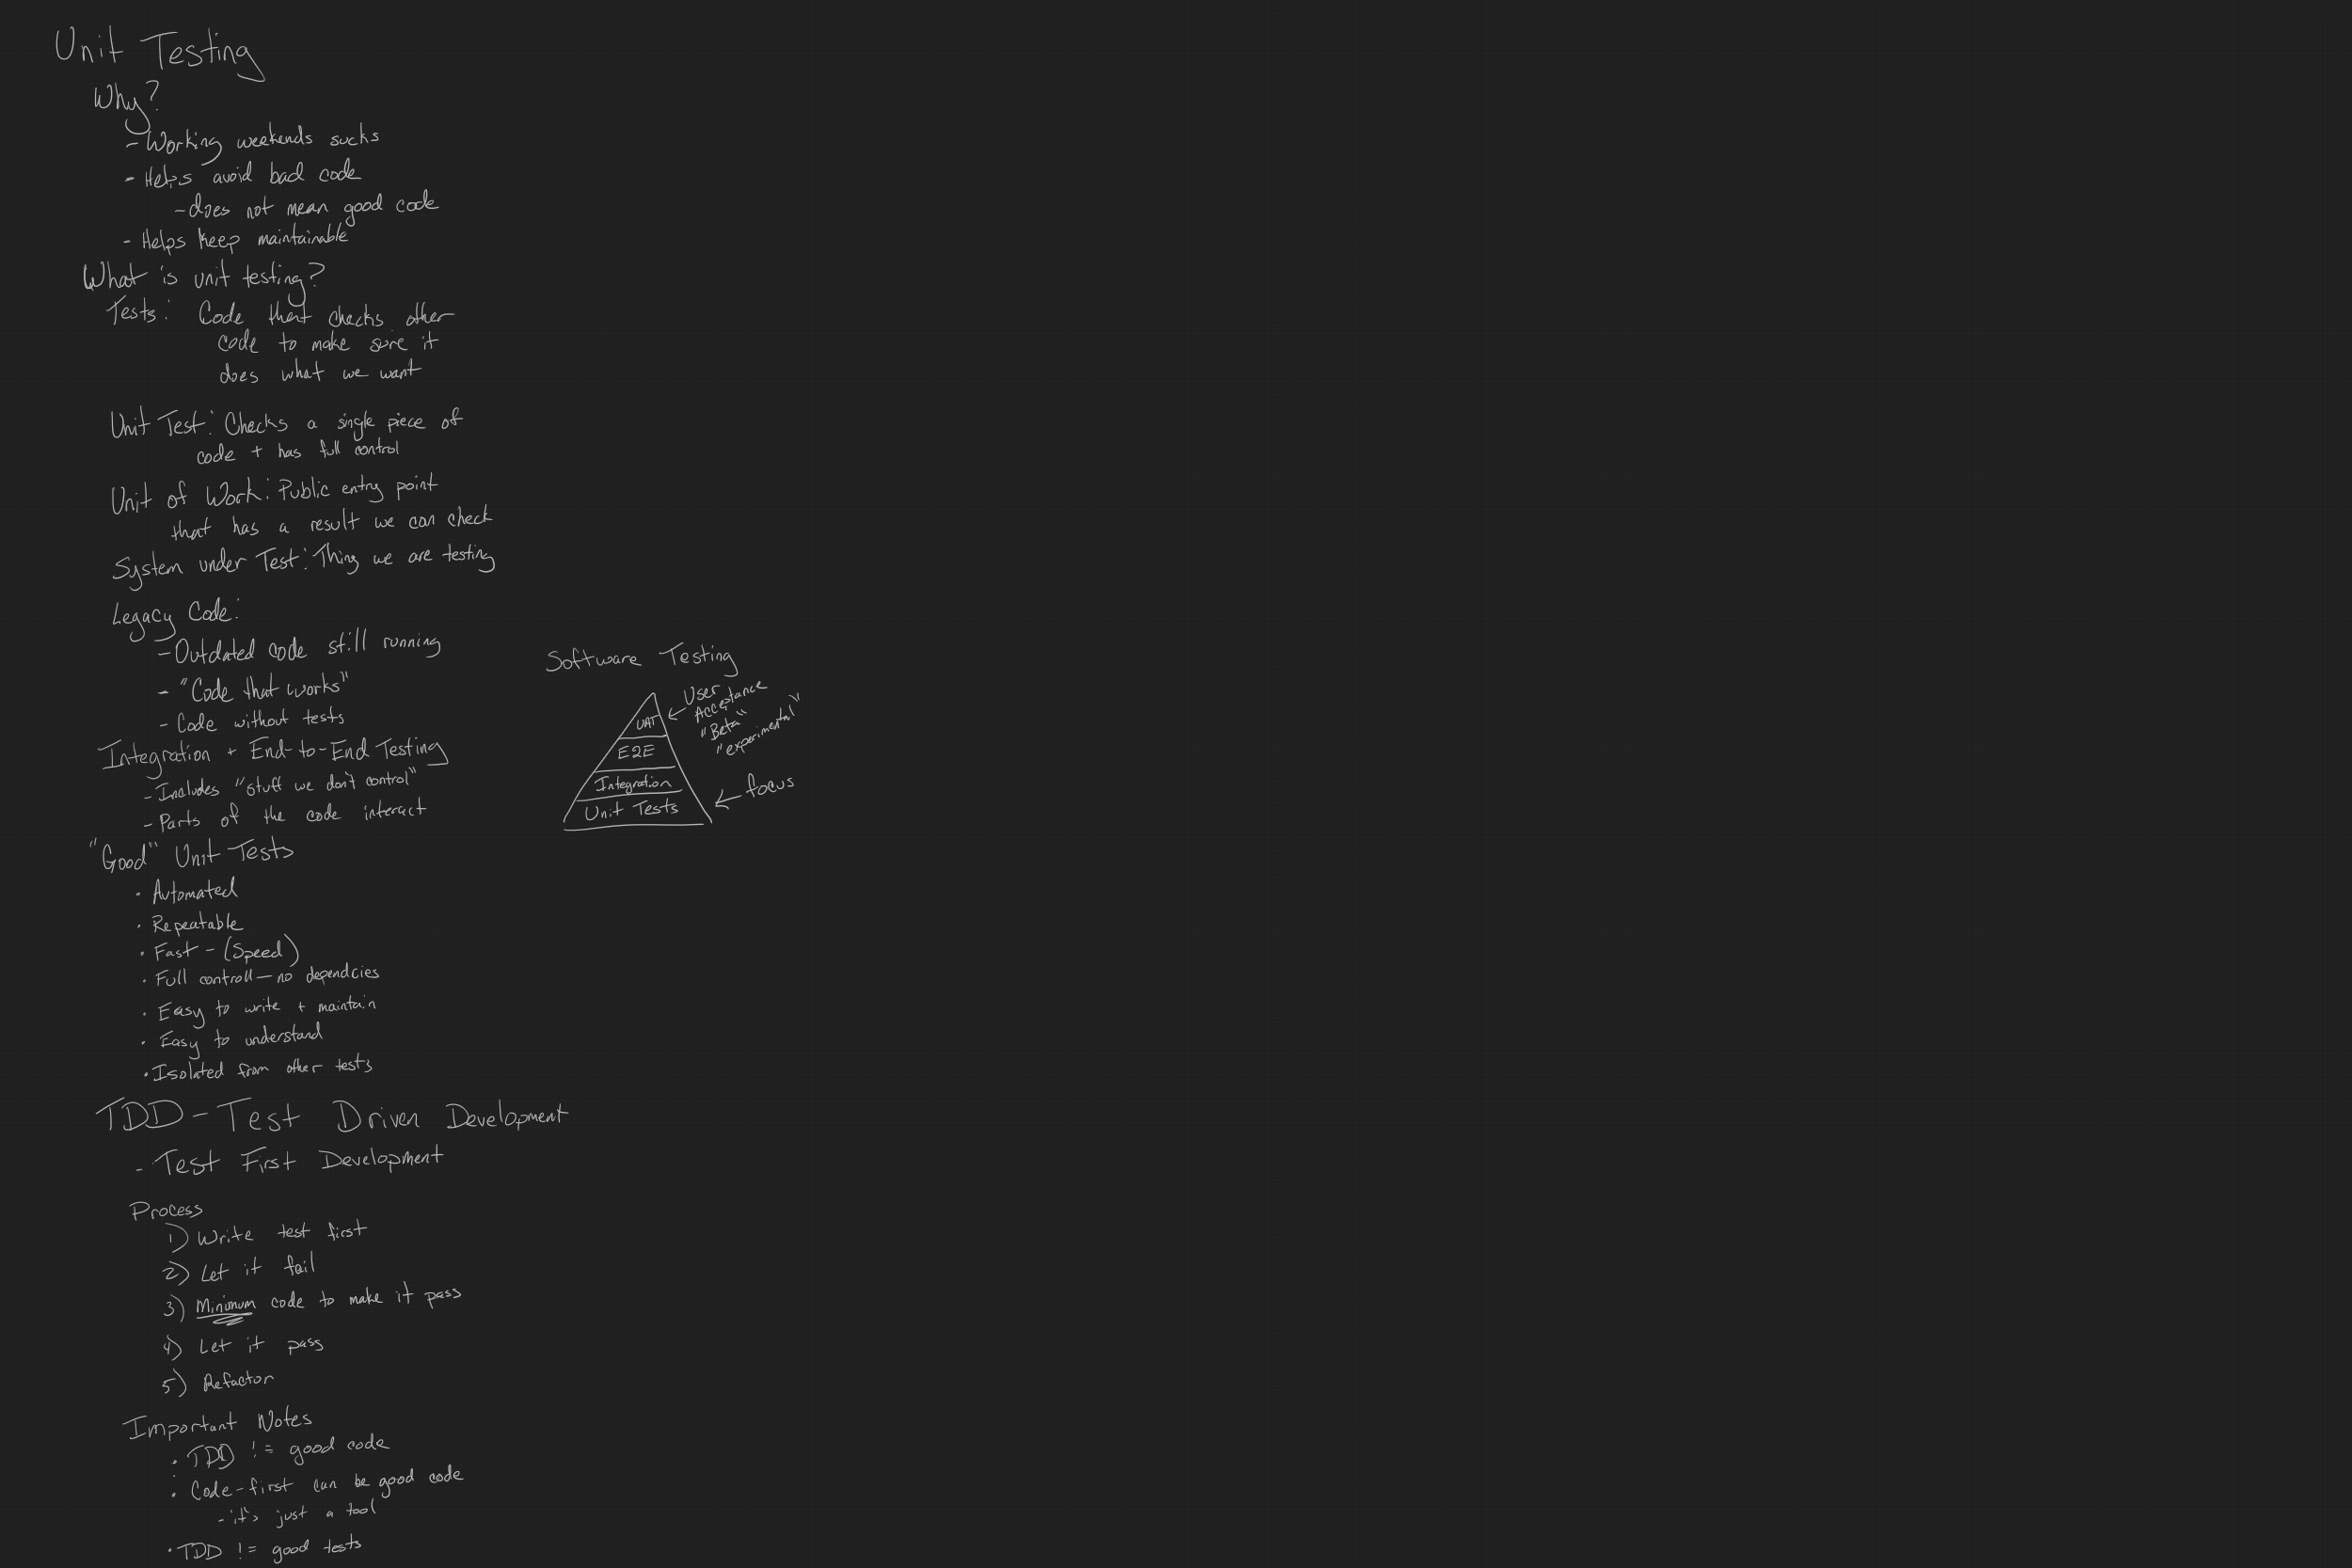 Unit Testing
Why?
- Working weekends sucks
- Helps avoid bad code
- does not mean good code
- Helps keep maintainable
What is unit testing?
Tests: Code that checks other
code to make sure it
does what we want
Unit Test: Checks a single piece of
code + has full control
Unit of Work: Public entry point
that has a result we can check
System under Test: Thing we are testing
Legacy Code:
- Outdated code still running
- "Code that works"
- Code without tests
Integration + End-to-End Testing
- Includes "stuff we don't control"
- Parts of the code interact
"Good" Unit Tests
• Automated
• Repeatable
• Fast - (Speed)
• Full controll - no dependcies
• Easy to write + maintain
• Easy to understand
• Isolated from other tests
TDD - Test Driven Development
- Test First Development
Process
1) Write test first
2) Let it fail
3) Minimum code to make it pass
4) Let it pass
5) Refactor
Important Notes
• TDD != good code
• Code-first can be good code
- it's just a tool
• TDD != good tests
Software Testing
UAT
← User
Acceptance
"Beta"
"experimental"
E2E
Integration
Unit Tests
← focus